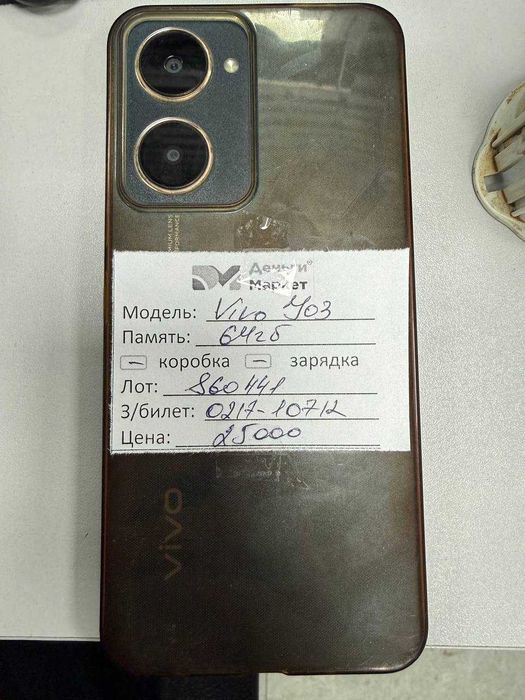 Деньги®
Маркет
Модель: Vivo Y03
Память: 64гб
– коробка – зарядка
Лот: 860441
З/билет: 0217-10712
Цена: 25000
vivo